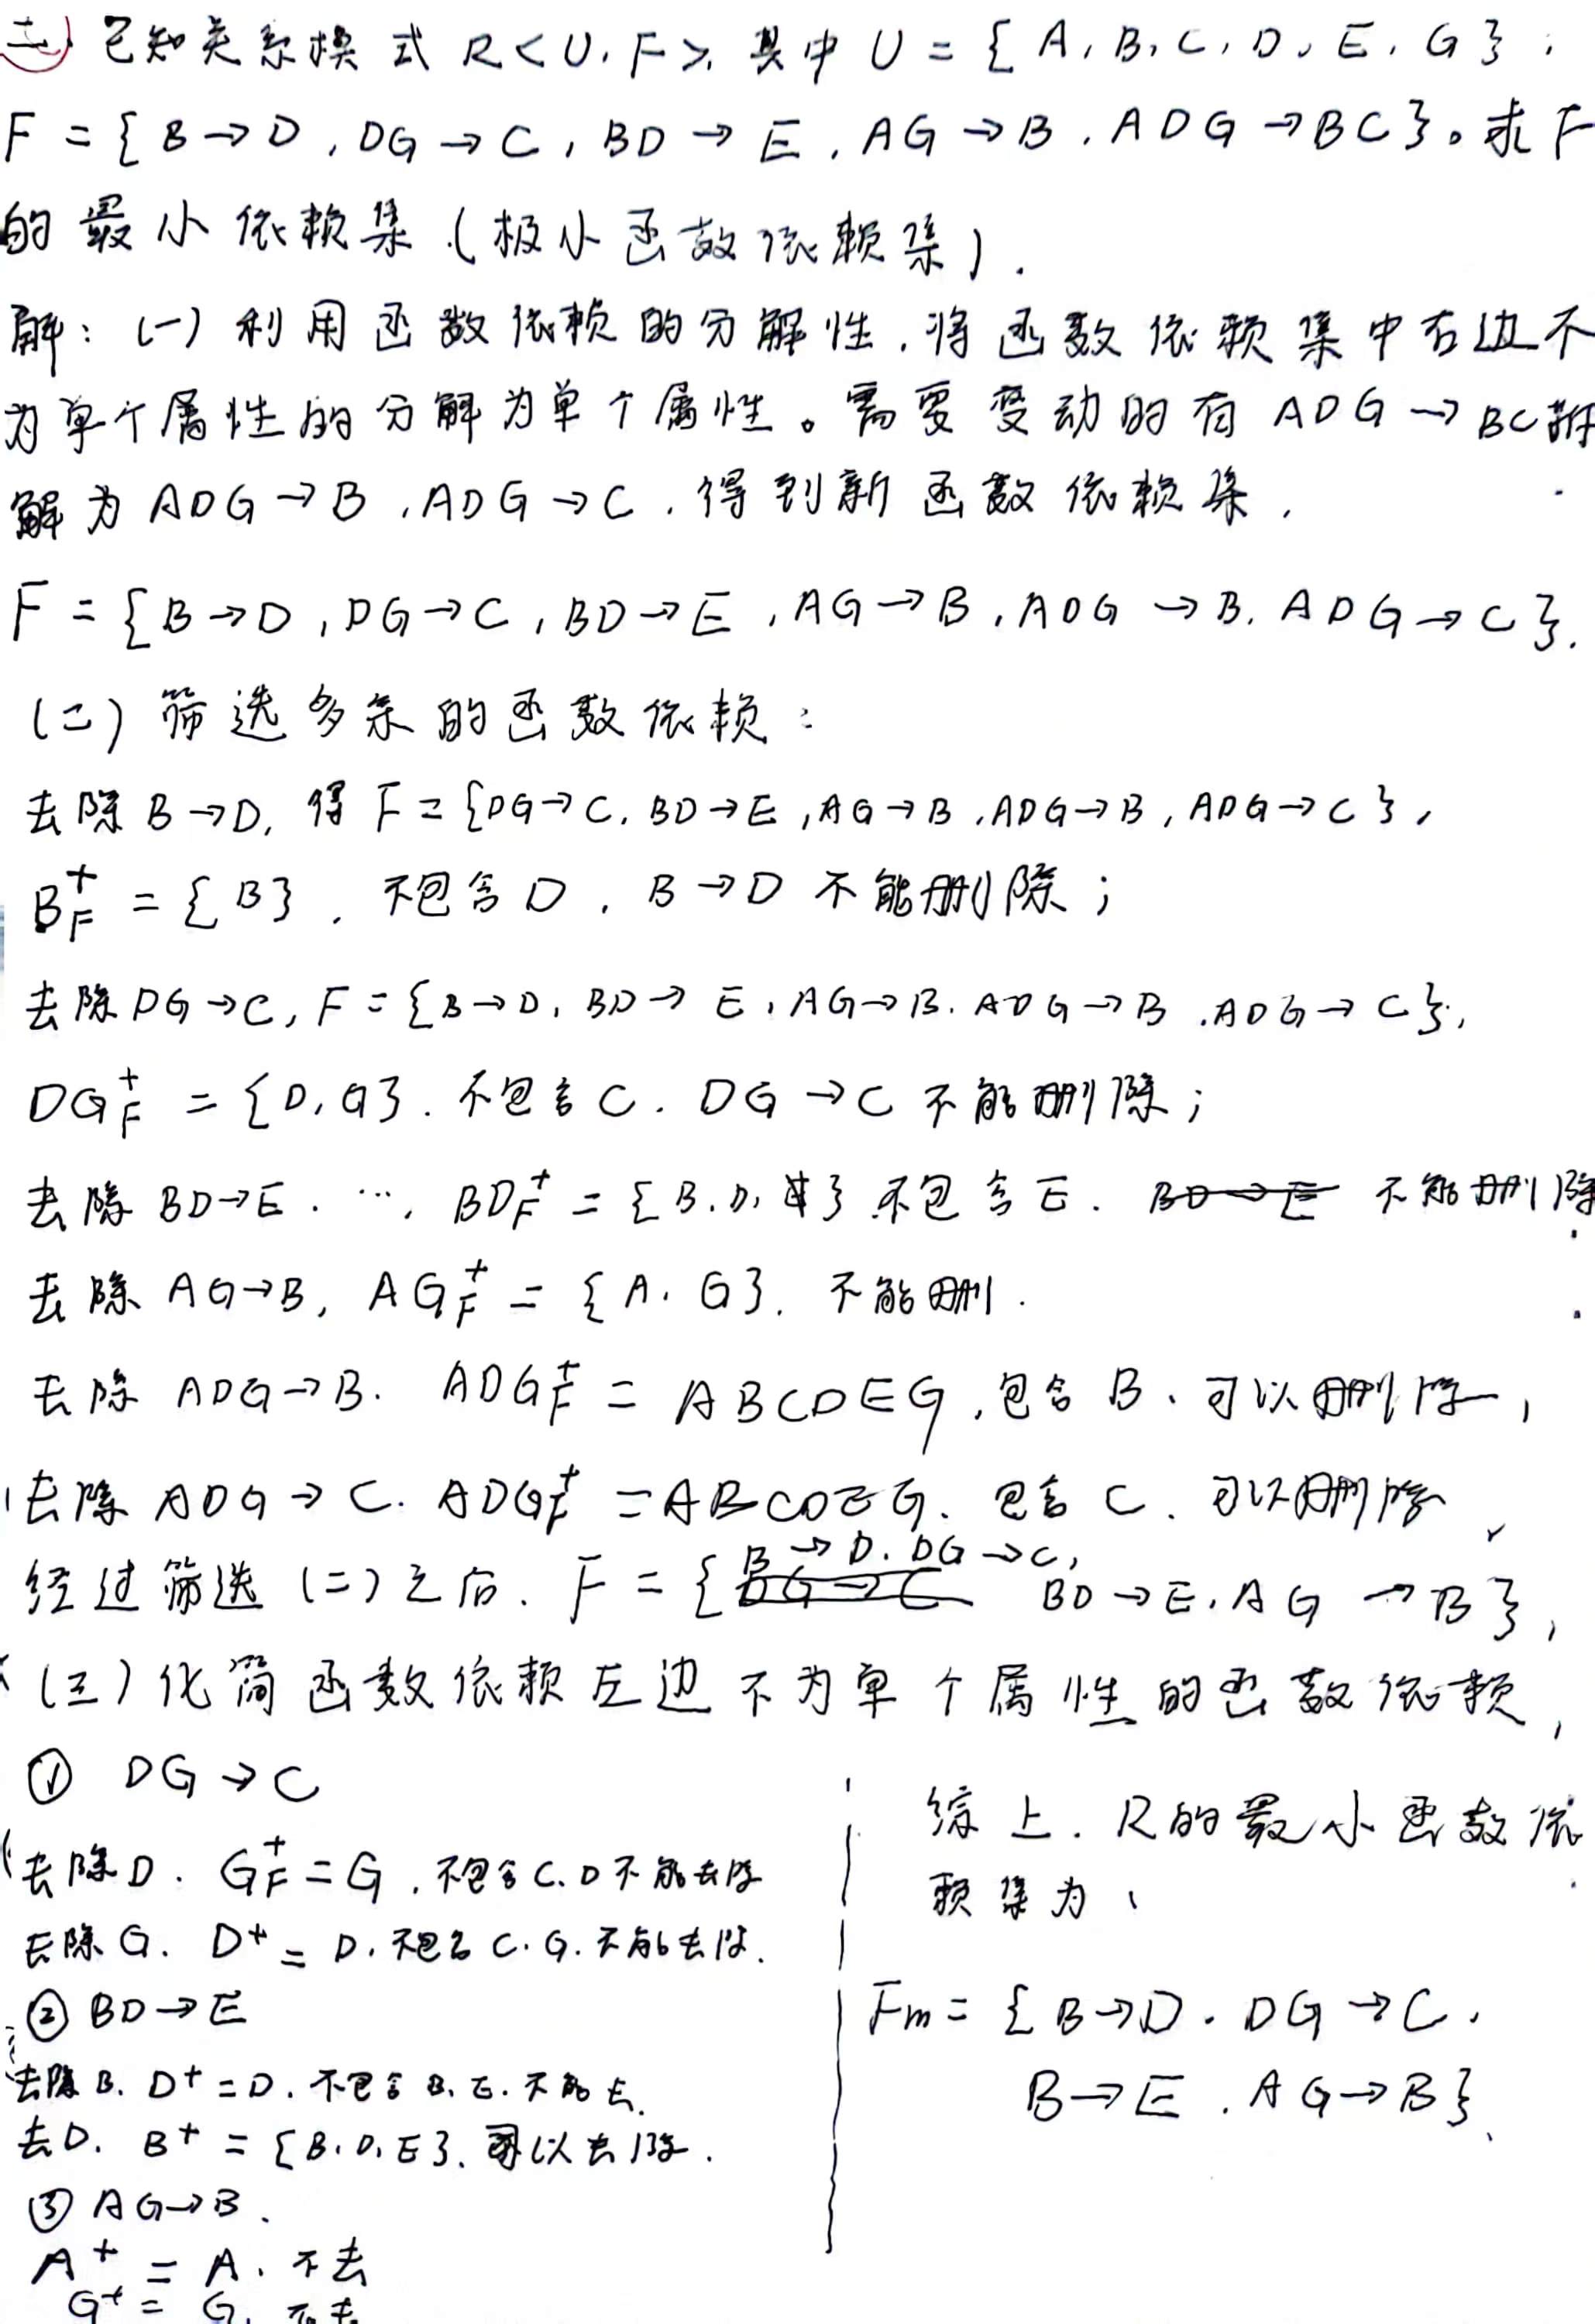 二) 已知关系模式 R<U,F>, 其中 U = {A, B, C, D, E, G},
F = {B→D, DG→C, BD→E, AG→B, ADG→BC}。求F
的最小依赖集.(极小函数依赖集).
解: (一) 利用函数依赖的分解性, 将函数依赖集中右边不
为单个属性的分解为单个属性。需要变动的有 ADG→BC 拆
解为 ADG→B, ADG→C, 得到新函数依赖集,
F = {B→D, DG→C, BD→E, AG→B, ADG→B, ADG→C}.
(二) 筛选多余的函数依赖:
去除 B→D, 得 F = {DG→C, BD→E, AG→B, ADG→B, ADG→C},
B_F^+ = {B}, 不包含D, B→D 不能删除;
去除 DG→C, F = {B→D, BD→E, AG→B, ADG→B, ADG→C},
DG_F^+ = {D, G}. 不包含C. DG→C 不能删除;
去除 BD→E. …, BD_F^+ = {B, D, } 不包含E. BD→E 不能删除
去除 AG→B, AG_F^+ = {A, G}. 不能删.
去除 ADG→B. ADG_F^+ = ABCDEG, 包含 B、可以删除,
去除 ADG→C. ADG_F^+ = ABCDEG. 包含 C. 可以删除,
经过筛选(二)之后. F = {B→D. DG→C, BD→E, AG→B},
(三) 化简函数依赖左边不为单个属性的函数依赖,
① DG→C
去除D. G_F^+ = G, 不包含C. D不能去除
去除G. D^+ = D. 不包含C. G. 不能去除.
② BD→E
去除B. D^+ = D. 不包含B. E. 不能去.
去D. B^+ = {B, D, E}. 可以去除.
③ AG→B.
A^+ = A. 不去
G^+ = G. 不去
综上. R的最小函数依
赖集为、
Fm = {B→D. DG→C.
B→E. AG→B}.